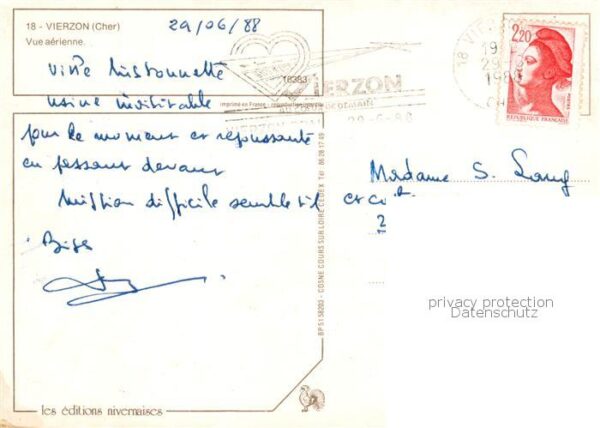 18 - VIERZON (Cher)
Vue aérienne.
29/06/88
ville
usine
18383
imprimé en France
VIERZON
29-6-88
pour le moment et repoussante
en passant devant
mission difficile semble t'il et ci
?
Bises
Madame S.
18 VI
19
29
198
CH
2,20
REPUBLIQUE FRANÇAISE
BP 51 58200 - COSNE COURS SUR LOIRE CEDEX Tél : 86 28 17 49
privacy protection
Datenschutz
les éditions nivernaises